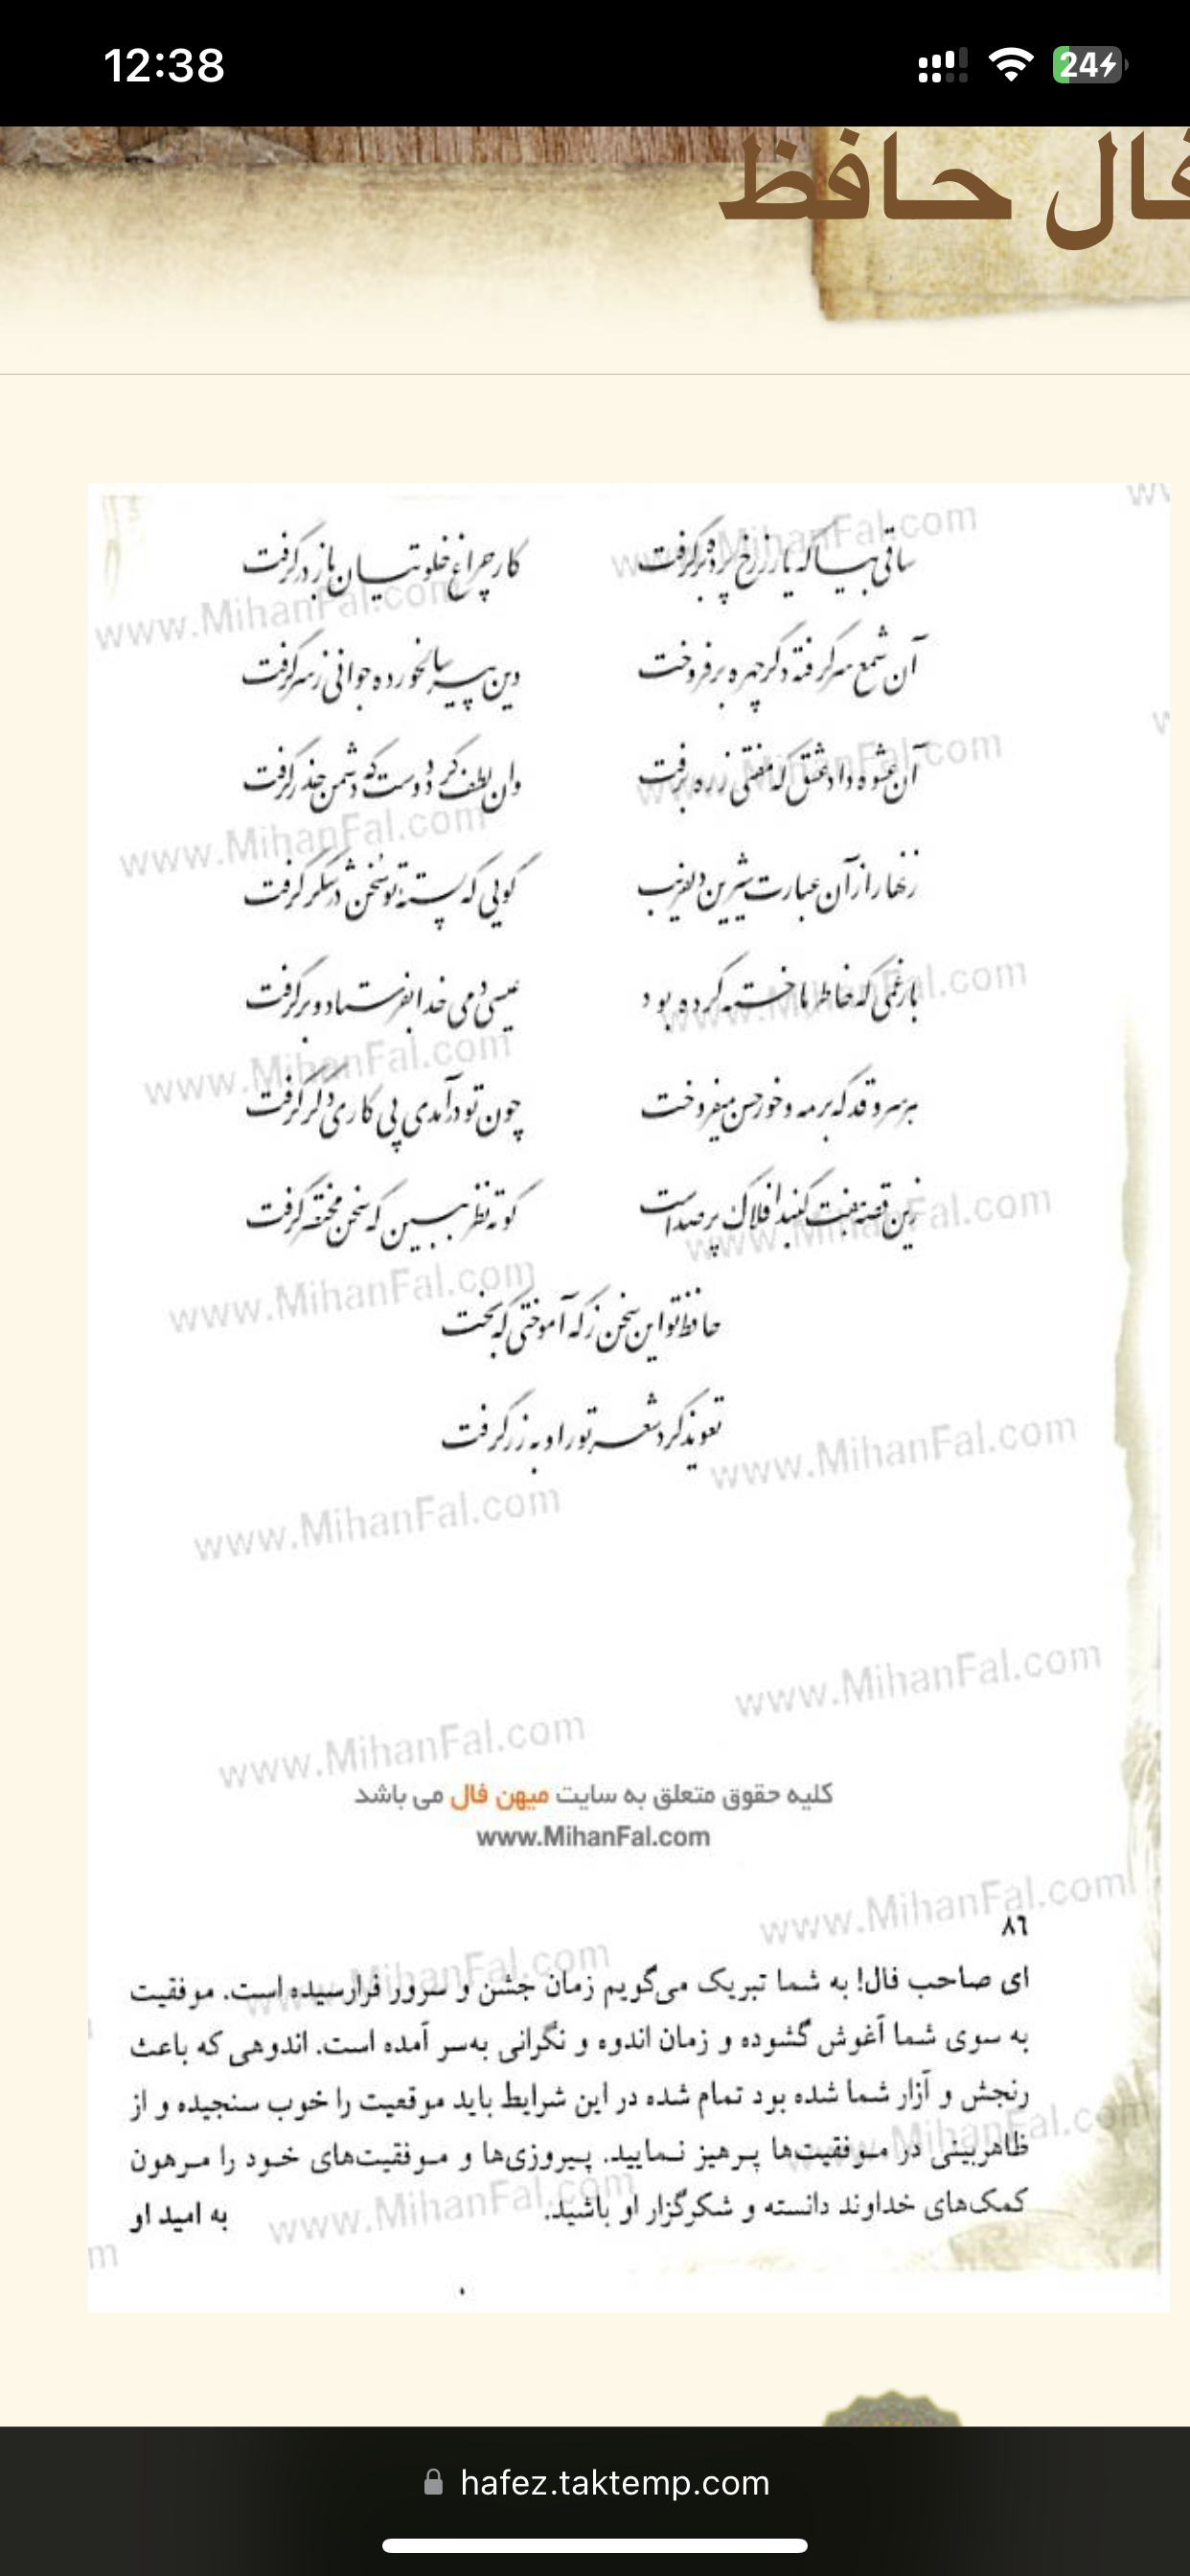 12:38
24
فال حافظ
ساقی بیا که یار ز رخ پرده برگرفت
کار چراغ خلوتیان باز درگرفت
آن شمع سرگرفته دگر چهره برفروخت
وین پیر سالخورده جوانی ز سر گرفت
آن عشوه داد عشق که مفتی ز ره برفت
وان لطف کرد دوست که دشمن حذر گرفت
زنهار از آن عبارت شیرین دلفریب
گویی که پسته تو سخن در شکر گرفت
بار غمی که خاطر ما خسته کرده بود
عیسی دمی خدا بفرستاد و برگرفت
هر سرو قد که بر مه و خور حسن میفروخت
چون تو درآمدی پی کاری دگر گرفت
زین قصه هفت گنبد افلاک پر صداست
کوته نظر ببین که سخن مختصر گرفت
حافظ تو این سخن ز که آموختی که بخت
تعویذ کرد شعر تو را و به زر گرفت
www.MihanFal.com
کلیه حقوق متعلق به سایت میهن فال می باشد
www.MihanFal.com
۸۶
ای صاحب فال! به شما تبریک می‌گویم زمان جشن و سرور فرارسیده است. موفقیت
به سوی شما آغوش گشوده و زمان اندوه و نگرانی به‌سر آمده است. اندوهی که باعث
رنجش و آزار شما شده بود تمام شده در این شرایط باید موقعیت را خوب سنجیده و از
ظاهربینی در موفقیت‌ها پرهیز نمایید. پیروزی‌ها و موفقیت‌های خود را مرهون
کمک‌های خداوند دانسته و شکرگزار او باشید. به امید او
hafez.taktemp.com